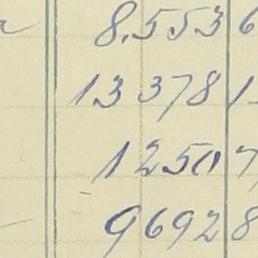 8.5536
133781
12507
96928